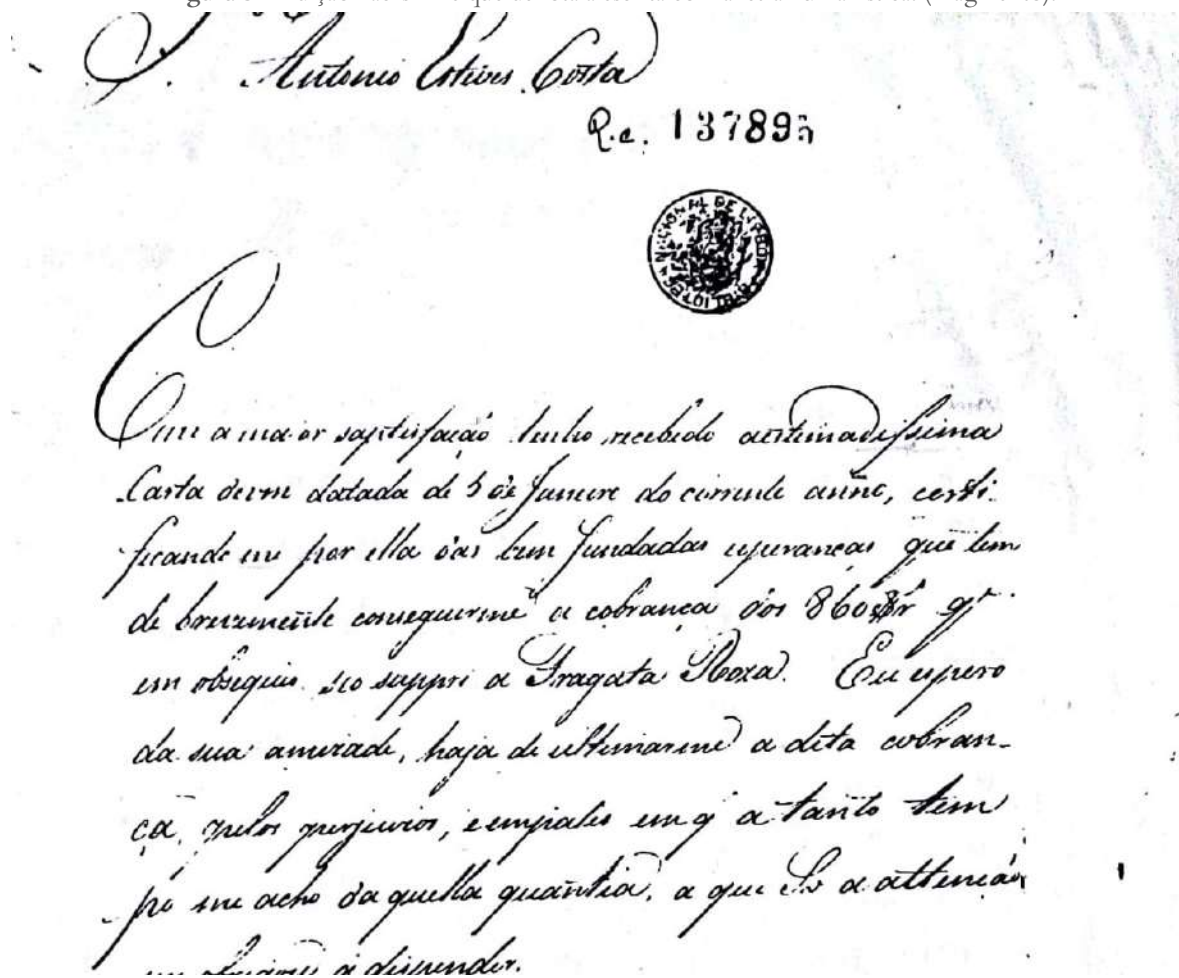 Antonio Esteves Costa
R.e. 137895
BIBLIOTECA NACIONAL DE LISBOA
Com a maior saptisfação tenho recebido a estimadissima
Carta de vm datada de 5 de Janeiro do corrente anno, certi-
ficando me por ella das bem fundadas esperanças que tem
de brevemente conseguirme a cobrança dos 860$r q̃
em obsequio seo suppri a Fragata Roza. Eu espero
da sua amizade, haja de ultimarme a dita cobran-
ça, pelos perjuizos, e empates em q̃ a tanto tem
po me acho da quella quantia, a que So a attenção
me obrigou a dispender.